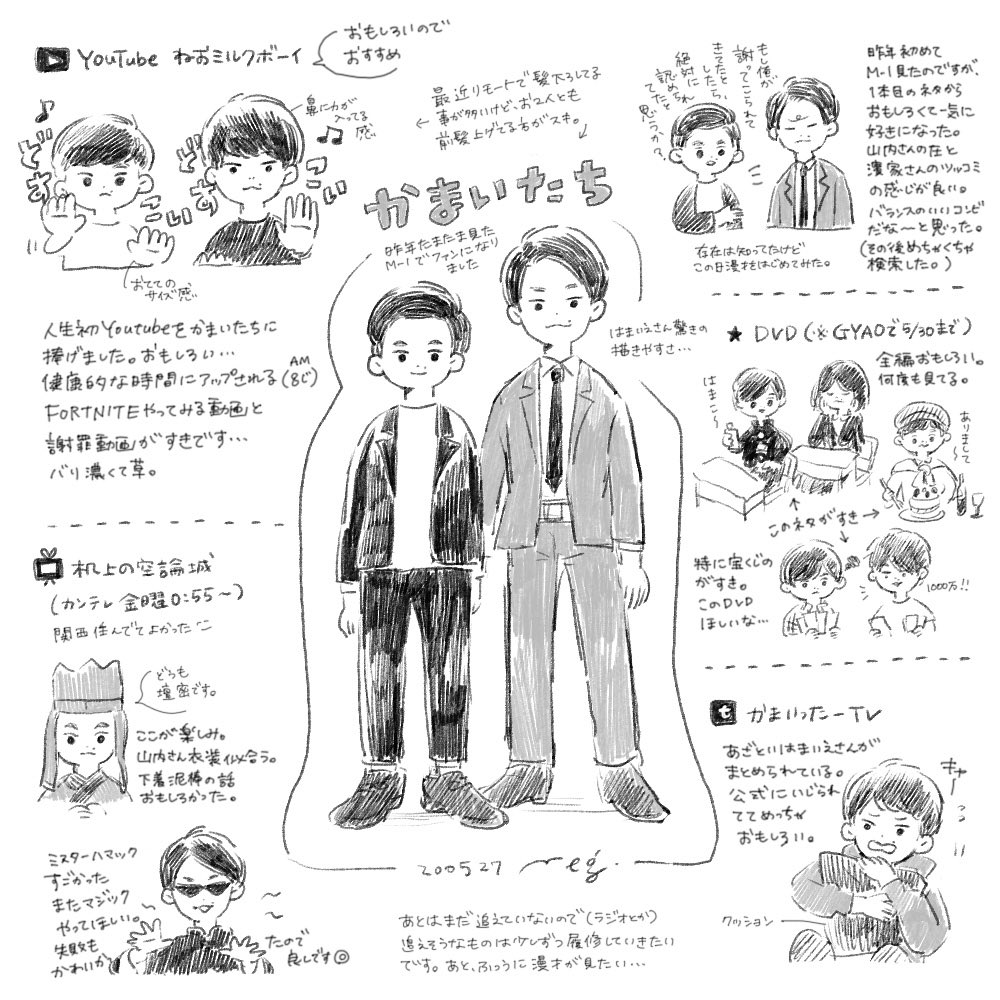 YouTube ねおミルクボーイ
おもしろいので
おすすめ
鼻に力が
入ってる
感
どさあ
こい
どさあ
こい
おてての
サイズ感
人生初Youtubeをかまいたちに
捧げました。おもしろい…
健康的な時間にアップされる(AM8じ)
FORTNITEやってみる動画と
謝罪動画がすきです…
バリ濃くて草。
最近リモートで髪下ろしてる
事が多いけど、お2人とも
前髪上げてる方がスキ。
かまいたち
昨年たまたま見た
M-1でファンになり
ました
はまいえさん驚きの
描きやすさ…
もし俺が
謝ってこられて
きてたとしたら、
絶対に
認められ
てたと
思うか?
存在は知ってたけど
この日漫才をはじめてみた。
昨年初めて
M-1見たのですが、
1本目のネタから
おもしろくて一気に
好きになった。
山内さんの圧と
濱家さんのツッコミ
の感じが良い。
バランスのいいコンビ
だな〜と思った。
(その後めちゃくちゃ
検索した。)
★ DVD(※GYAOで5/30まで)
全編おもしろい。
何度も見てる。
はまこ〜
ありまして
このネタがすき
特に宝くじの
がすき。
このDVD
ほしいな…
1000万!!
机上の空論城
(カンテレ 金曜0:55〜)
関西住んでてよかった
どうも
壇密です。
ここが楽しみ。
山内さん衣装似合う。
下着泥棒の話
おもしろかった。
ミスターハマック
すごかった
またマジック
やってほしい。
失敗も
かわいか
たので
良しです◎
かまいったーTV
あざといはまいえさんが
まとめられている。
公式にいじられ
ててめっちゃ
おもしろい。
キャーっっ
クッション
200527 eg.
あとはまだ追えていないので(ラジオとか)
追えそうなものは少しずつ履修していきたい
です。あと、ふつうに漫才が見たい…